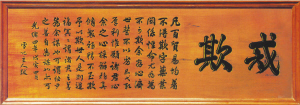 戒欺
凡百貿易均着
不得欺字藥業
關係性命尤為
萬不可欺余存心濟
世誓不以劣品弋
取厚利惟願諸君心
余之心採辦務真
修製務精不至欺
予以欺世人是則造
福冥冥謂諸君之善
為余謀也可謂諸君
之善自為謀也亦可
光緒四年戊寅四月
雪記主人跋